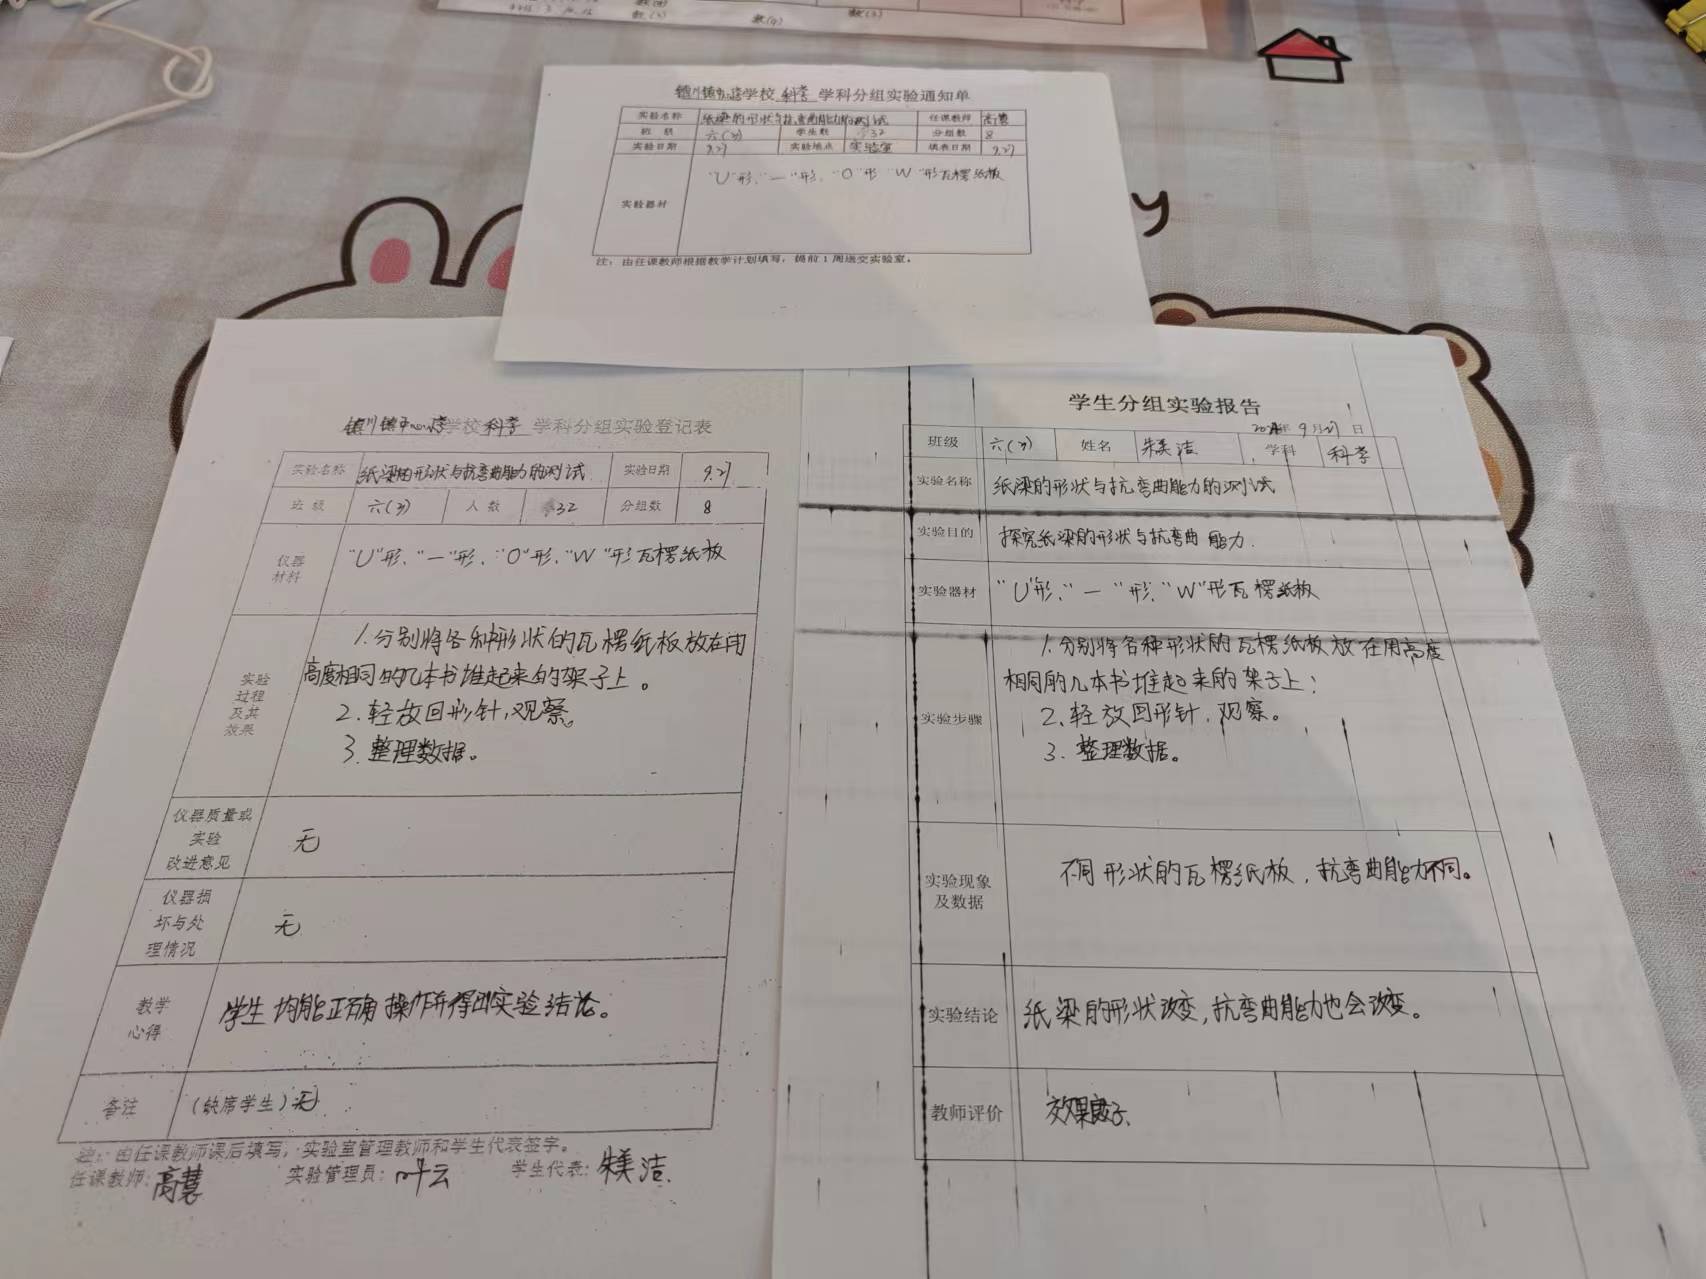 数(3)
数(4)
数(3)
学校 科学 学科分组实验通知单
实验名称 纸梁的形状与抗弯曲能力的测试 任课教师 高慧
班 级 六(3) 学生数 32 分组数 8
实验日期 9.27 实验地点 实验室 填表日期 9.27
实验器材
"U"形、"一"形、"O"形 "W"形瓦楞纸板
注：由任课教师根据教学计划填写，提前1周送交实验室。
y
学校 科学 学科分组实验登记表
实验名称 纸梁的形状与抗弯曲能力的测试 实验日期 9.27
班 级 六(3) 人 数 32 分组数 8
仪器
材料
"U"形、"一"形、"O"形、"W"形瓦楞纸板
实验
过程
及其
效果
1.分别将各种形状的瓦楞纸板放在用
高度相同的几本书堆起来的架子上。
2.轻放回形针,观察。
3.整理数据。
仪器质量或
实验
改进意见
无
仪器损
坏与处
理情况
无
教学
心得
学生均能正确操作并得出实验结论。
备注
(缺席学生)无
注：由任课教师课后填写，实验室管理教师和学生代表签字。
任课教师:高慧 实验管理员:叶云 学生代表:朱美洁
学生分组实验报告
9月27日
班级 六(3) 姓名 朱美洁 学科 科学
实验名称 纸梁的形状与抗弯曲能力的测试
实验目的 探究纸梁的形状与抗弯曲能力.
实验器材 "U"形、"一"形、"W"形瓦楞纸板
实验步骤
1.分别将各种形状的瓦楞纸板放在用高度
相同的几本书堆起来的架子上;
2.轻放回形针,观察。
3.整理数据。
实验现象
及数据
不同形状的瓦楞纸板,抗弯曲能力不同。
实验结论 纸梁的形状改变,抗弯曲能力也会改变。
教师评价